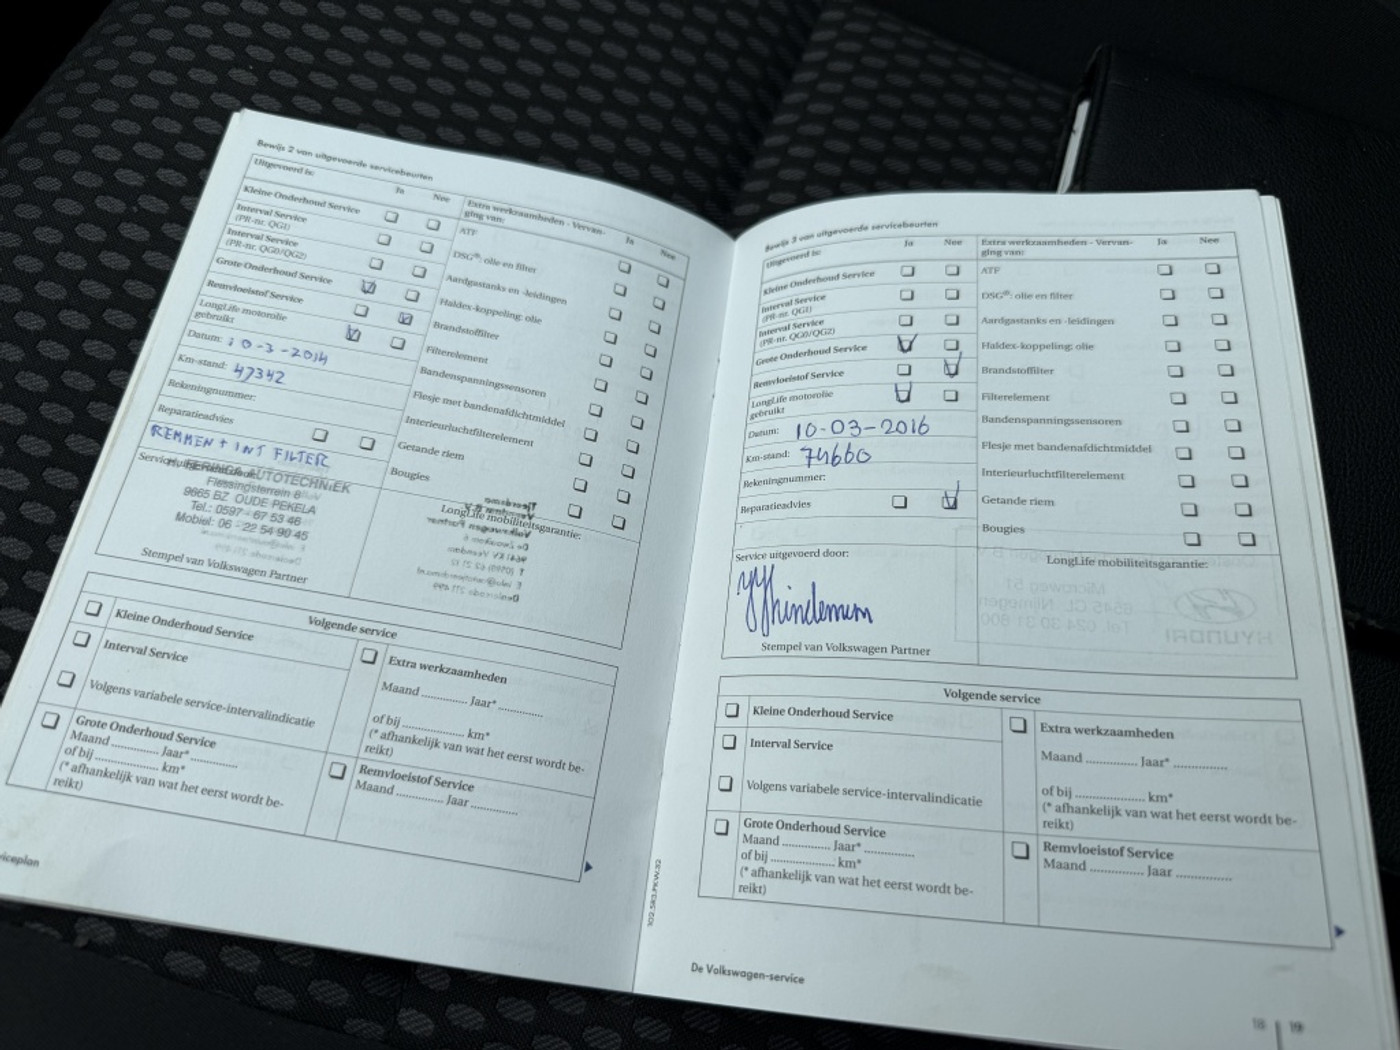 Bewijs 2 van uitgevoerde servicebeurten
Uitgevoerd is:
Ja
Nee
Kleine Onderhoud Service
Interval Service
(PR-nr. QG1)
Interval Service
(PR-nr. QG0/QG2)
Grote Onderhoud Service
Remvloeistof Service
LongLife motorolie
gebruikt
Datum: 10-3-2014
Km-stand: 47342
Rekeningnummer:
Reparatieadvies
REMMEN + INT FILTER
AUTOTECHNIEK
Flessingsterrein 8
9665 BZ OUDE PEKELA
Tel.: 0597 - 67 53 46
Mobiel: 06 - 22 54 90 45
Stempel van Volkswagen Partner
Extra werkzaamheden - Vervan-
ging van:
Ja
Nee
ATF
DSG®: olie en filter
Aardgastanks en -leidingen
Haldex-koppeling: olie
Brandstoffilter
Filterelement
Bandenspanningssensoren
Flesje met bandenafdichtmiddel
Interieurluchtfilterelement
Getande riem
Bougies
LongLife mobiliteitsgarantie:
Volgende service
Kleine Onderhoud Service
Interval Service
Volgens variabele service-intervalindicatie
Grote Onderhoud Service
Maand .............. Jaar* ..............
of bij .................... km*
(* afhankelijk van wat het eerst wordt be-
reikt)
Extra werkzaamheden
Maand .............. Jaar* ..............
of bij .................... km*
(* afhankelijk van wat het eerst wordt be-
reikt)
Remvloeistof Service
Maand .............. Jaar ..............
102.5R3.PKW.32
Bewijs 3 van uitgevoerde servicebeurten
Uitgevoerd is:
Ja
Nee
Kleine Onderhoud Service
Interval Service
(PR-nr. QG1)
Interval Service
(PR-nr. QG0/QG2)
Grote Onderhoud Service
Remvloeistof Service
LongLife motorolie
gebruikt
Datum: 10-03-2016
Km-stand: 74660
Rekeningnummer:
Reparatieadvies
Service uitgevoerd door:
Stempel van Volkswagen Partner
Extra werkzaamheden - Vervan-
ging van:
Ja
Nee
ATF
DSG®: olie en filter
Aardgastanks en -leidingen
Haldex-koppeling: olie
Brandstoffilter
Filterelement
Bandenspanningssensoren
Flesje met bandenafdichtmiddel
Interieurluchtfilterelement
Getande riem
Bougies
LongLife mobiliteitsgarantie:
Volgende service
Kleine Onderhoud Service
Interval Service
Volgens variabele service-intervalindicatie
Grote Onderhoud Service
Maand .............. Jaar* ..............
of bij .................... km*
(* afhankelijk van wat het eerst wordt be-
reikt)
Extra werkzaamheden
Maand .............. Jaar* ..............
of bij .................... km*
(* afhankelijk van wat het eerst wordt be-
reikt)
Remvloeistof Service
Maand .............. Jaar ..............
De Volkswagen-service
18 | 19